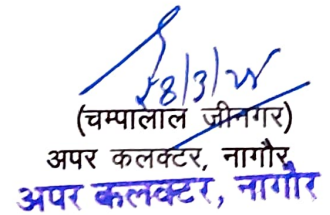 18/3/25
(चम्पालाल जीनगर)
अपर कलक्टर, नागौर
अपर कलक्टर, नागौर